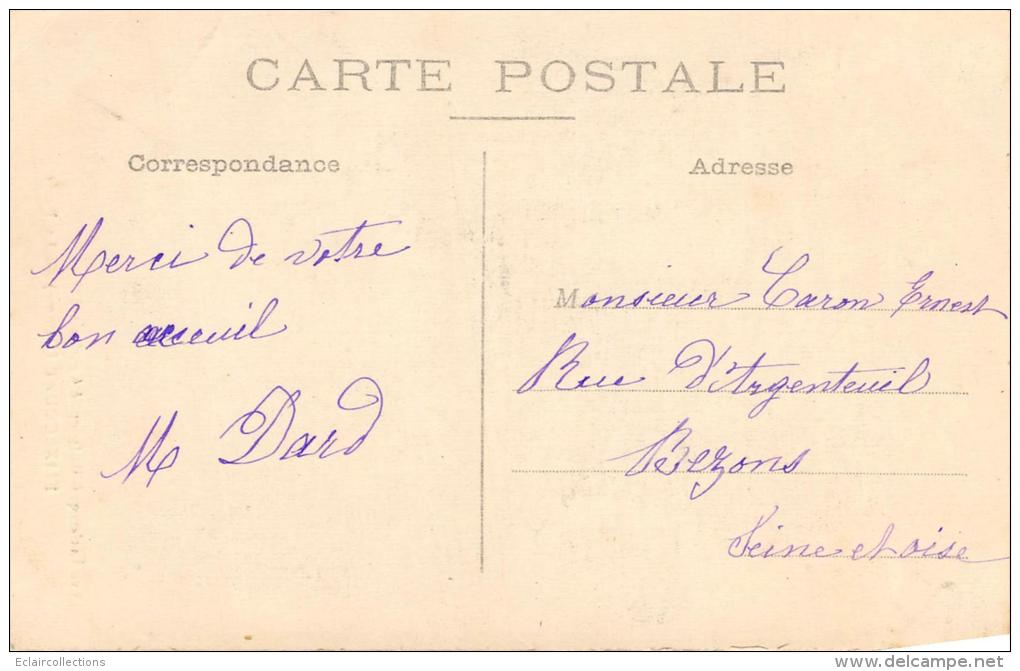 CARTE POSTALE
Correspondance
Merci de votre
bon acueuil
M Dard
Adresse
Monsieur Caron Ernest
Rue d'Argenteuil
Bezons
Seine et oise
Eclaircollections
www.delcampe.net